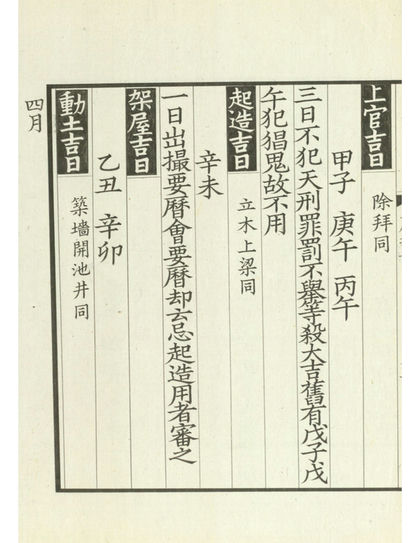 上官吉日 除拜同
甲子 庚午 丙午
三日不犯天刑罪罰不舉等殺大吉舊有戊子戊
午犯猖鬼故不用
起造吉日 立木上梁同
辛未
一日出撮要曆會要曆却云忌起造用者審之
架屋吉日
乙丑 辛卯
動土吉日 築墻開池井同
四月